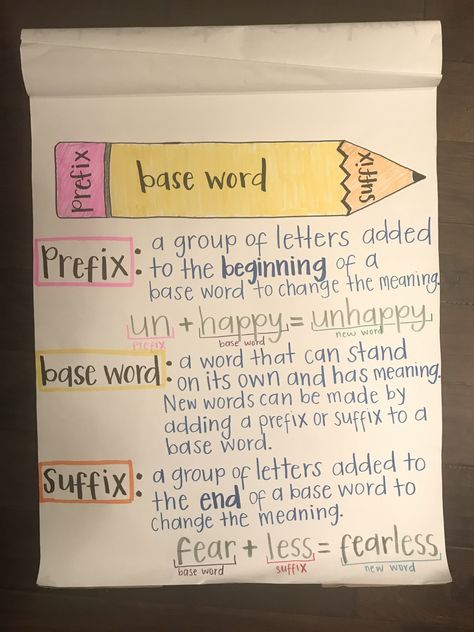 prefix base word suffix
Prefix: a group of letters added
to the beginning of a
base word to change the meaning.
un + happy = unhappy
prefix base word new word
base word: a word that can stand
on its own and has meaning.
New words can be made by
adding a prefix or suffix to a
base word.
Suffix: a group of letters added to
the end of a base word to
change the meaning.
fear + less = fearless
base word suffix new word